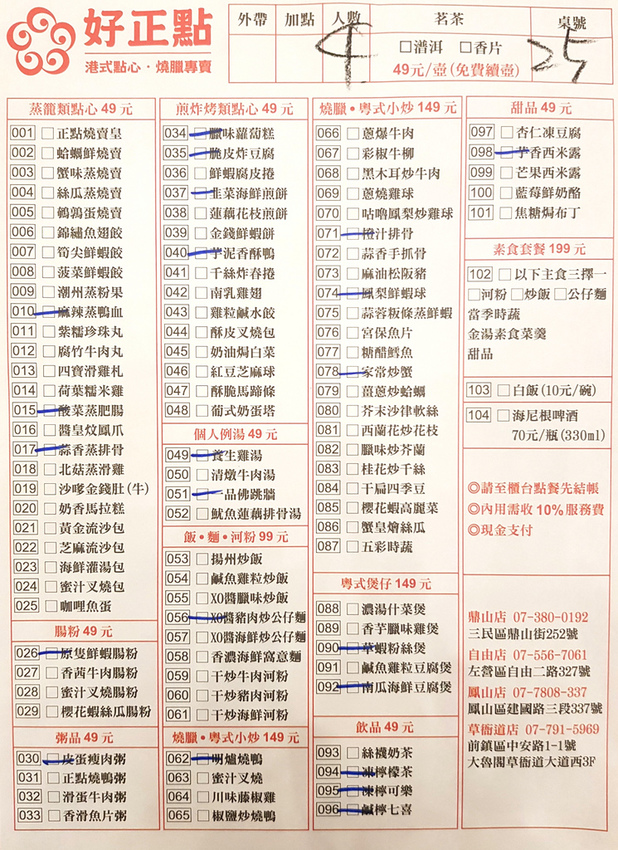 好正點
港式點心・燒臘專賣
外帶 加點 人數 茗茶 桌號
4 □普洱 □香片 25
49元/壺(免費續壺)
蒸籠類點心 49 元
001 □正點燒賣皇
002 □蛤蠣鮮燒賣
003 □蟹味蒸燒賣
004 □絲瓜蒸燒賣
005 □鵪鶉蛋燒賣
006 □錦繡魚翅餃
007 □筍尖鮮蝦餃
008 □菠菜鮮蝦餃
009 □潮州蒸粉果
010 □麻辣蒸鴨血
011 □紫糯珍珠丸
012 □腐竹牛肉丸
013 □四寶滑雞札
014 □荷葉糯米雞
015 □酸菜蒸肥腸
016 □醬皇炆鳳爪
017 □蒜香蒸排骨
018 □北菇蒸滑雞
019 □沙嗲金錢肚(牛)
020 □奶香馬拉糕
021 □黃金流沙包
022 □芝麻流沙包
023 □海鮮灌湯包
024 □蜜汁叉燒包
025 □咖哩魚蛋
腸粉 49 元
026 □原隻鮮蝦腸粉
027 □香茜牛肉腸粉
028 □蜜汁叉燒腸粉
029 □櫻花蝦絲瓜腸粉
粥品 49 元
030 □皮蛋瘦肉粥
031 □正點燒鴨粥
032 □滑蛋牛肉粥
033 □香滑魚片粥
煎炸烤類點心 49 元
034 □臘味蘿蔔糕
035 □脆皮炸豆腐
036 □鮮蝦腐皮捲
037 □韭菜海鮮煎餅
038 □蓮藕花枝煎餅
039 □金錢鮮蝦餅
040 □芋泥香酥鴨
041 □千絲炸春捲
042 □南乳雞翅
043 □雞粒鹹水餃
044 □酥皮叉燒包
045 □奶油焗白菜
046 □紅豆芝麻球
047 □酥脆馬蹄條
048 □葡式奶蛋塔
個人例湯 49 元
049 □養生雞湯
050 □清燉牛肉湯
051 □一品佛跳牆
052 □魷魚蓮藕排骨湯
飯・麵・河粉 99 元
053 □揚州炒飯
054 □鹹魚雞粒炒飯
055 □XO醬臘味炒飯
056 □XO醬豬肉炒公仔麵
057 □XO醬海鮮炒公仔麵
058 □香濃海鮮窩意麵
059 □干炒牛肉河粉
060 □干炒豬肉河粉
061 □干炒海鮮河粉
燒臘・粵式小炒 149 元
062 □明爐燒鴨
063 □蜜汁叉燒
064 □川味藤椒雞
065 □椒鹽炒燒鴨
燒臘・粵式小炒 149 元
066 □蔥爆牛肉
067 □彩椒牛柳
068 □黑木耳炒牛肉
069 □蔥燒雞球
070 □咕嚕鳳梨炒雞球
071 □橙汁排骨
072 □蒜香手抓骨
073 □麻油松阪豬
074 □鳳梨鮮蝦球
075 □蒜蓉粄條蒸鮮蝦
076 □宮保魚片
077 □糖醋鱈魚
078 □家常炒蟹
079 □薑蔥炒蛤蠣
080 □芥末沙律軟絲
081 □西蘭花炒花枝
082 □臘味炒芥蘭
083 □桂花炒千絲
084 □干扁四季豆
085 □櫻花蝦高麗菜
086 □蟹皇燴絲瓜
087 □五彩時蔬
粵式煲仔 149 元
088 □濃湯什菜煲
089 □香芋臘味雞煲
090 □草蝦粉絲煲
091 □鹹魚雞粒豆腐煲
092 □南瓜海鮮豆腐煲
飲品 49 元
093 □絲襪奶茶
094 □凍檸檬茶
095 □凍檸可樂
096 □鹹檸七喜
甜品 49 元
097 □杏仁凍豆腐
098 □芋香西米露
099 □芒果西米露
100 □藍莓鮮奶酪
101 □焦糖焗布丁
素食套餐 199 元
102 □以下主食三擇一
□河粉 □炒飯 □公仔麵
當季時蔬
金湯素食菜羹
甜品
103 □白飯(10元/碗)
104 □海尼根啤酒
70元/瓶(330ml)
◎請至櫃台點餐先結帳
◎內用需收 10%服務費
◎現金支付
鼎山店 07-380-0192
三民區鼎山街252號
自由店 07-556-7061
左營區自由二路327號
鳳山店 07-7808-337
鳳山區建國路三段337號
草衙道店 07-791-5969
前鎮區中安路1-1號
大魯閣草衙道大道西3F